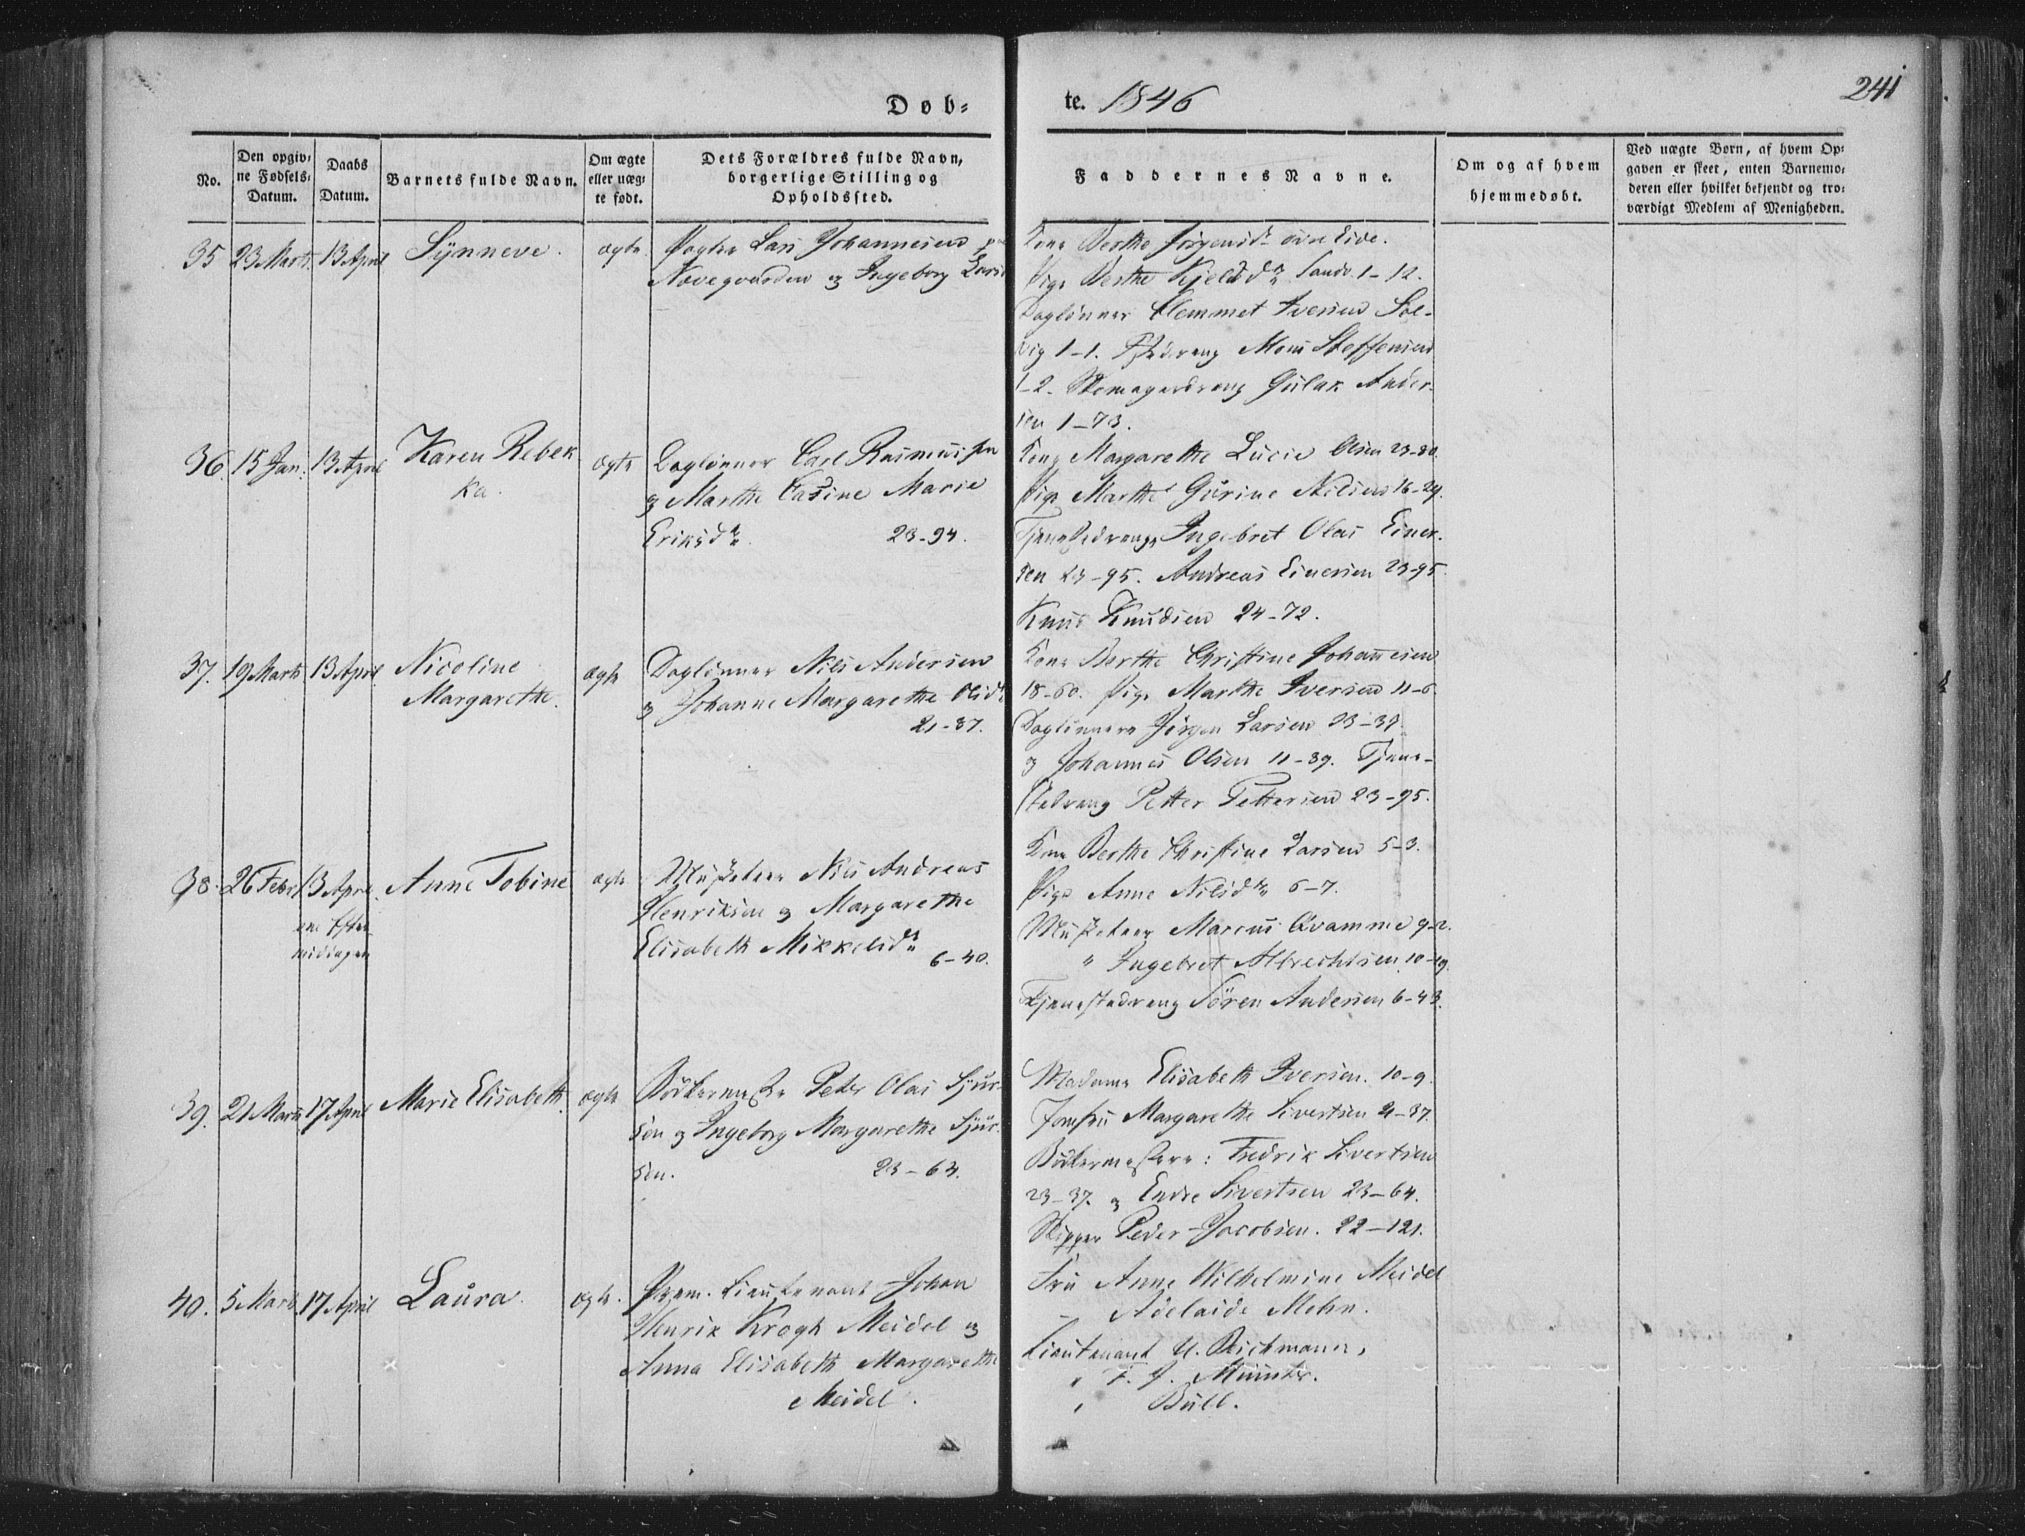 Døb-
te. 1846
241
No.
Den opgiv-
ne Fødsels-
Datum.
Daabs
Datum.
Barnets fulde Navn.
Om ægte
eller uæg-
te født.
Dets Forældres fulde Navn,
borgerlige Stilling og
Opholdssted.
Faddernes Navne.
Om og af hvem
hjemmedøbt.
Ved uægte Børn, af hvem Op-
gaven er skeet, enten Barnemo-
deren eller hvilket bekjendt og tro-
værdigt Medlem af Menigheden.
35 23 Marts 13 April Synneve. ægte
Lars Johannesen
og Ingeborg
Kone Berthe
Pige Berthe Sandv. 1-12.
Daglönner Clemmet Iversen Sol-
vig 1-1. Mons Steffensen
1-2. Skomagerdreng Gulak Ander-
sen 1-73.
36. 15 Jan. 13 April Karen Rebek
ka. ægte
Daglönner Carl Rasmussen
og Marthe Casine Marie
Eriksdr. 23-94.
Kone Margarethe Lucie Olsen 23-80.
Pige Marthe Gurine Nilsen 16-29.
Tjenestedrenge Ingebret Olai Einer-
sen 23-95. Andreas Einersen 23-95.
Knud Knudsen 24-72.
37. 19 Marts 13 April Nicoline
Margarethe. ægte
Daglönner Nils Andersen
og Johanne Margarethe Olsdr
21-37.
Kone Berthe Christine Johannesen
18-60. Pige Marthe Iversen 11-6.
Daglönnere Jörgen Larsen 23-39.
og Johannes Olsen 11-39. Tjene-
stedreng Petter Pettersen 23-95.
38. 26 Febr. 13 April
om Efter-
middagen
Anne Tobine ægte
Musketeer Nils Andreas
Henriksen og Margarethe
Elisabeth Mikkelsdr. 6-40.
Kone Berthe Christine Larsen 5-3.
Pige Anne Nilsdr. 6-7.
Musketeer Marcus Qvamme 9-2.
" Ingebret Albrechtsen 10-19.
Tjenestedreng Sören Andersen 6-43.
39. 21 Marts 17 April Marie Elisabeth. ægte
Bödkermester Peter Olai Sjur-
sen og Ingeborg Margarethe Sjur-
sen. 23-64.
Madame Elisabeth Iversen. 10-9.
Jomfru Margarethe Sivertsen 21-37.
Bödkermestere: Fredrik Sivertsen
23-37. og Endre Sivertsen 23-64.
Skipper Peder Jacobsen. 22-121.
40. 5 Marts 17 April Laura. ægte.
Prem. Lieutenant Johan
Henrik Krogh Meidel og
Anna Elisabeth Margarethe
Meidel.
Fru Anne Wilhelmine Meidel
- Adelaide Mohn.
Lieutenant
" F. G. Münster.
" Bull.